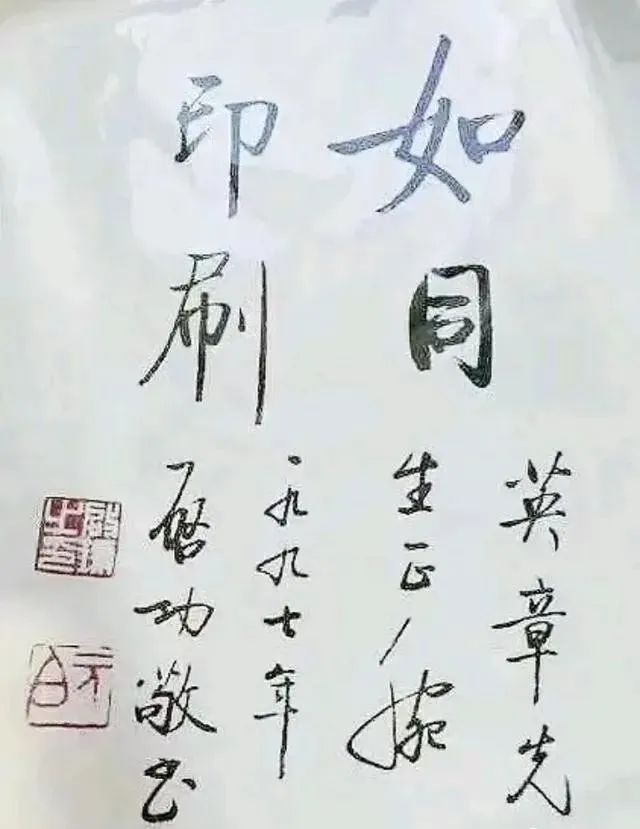 如同
印刷
英章先
生正
一九九七年
启功敬书
元白